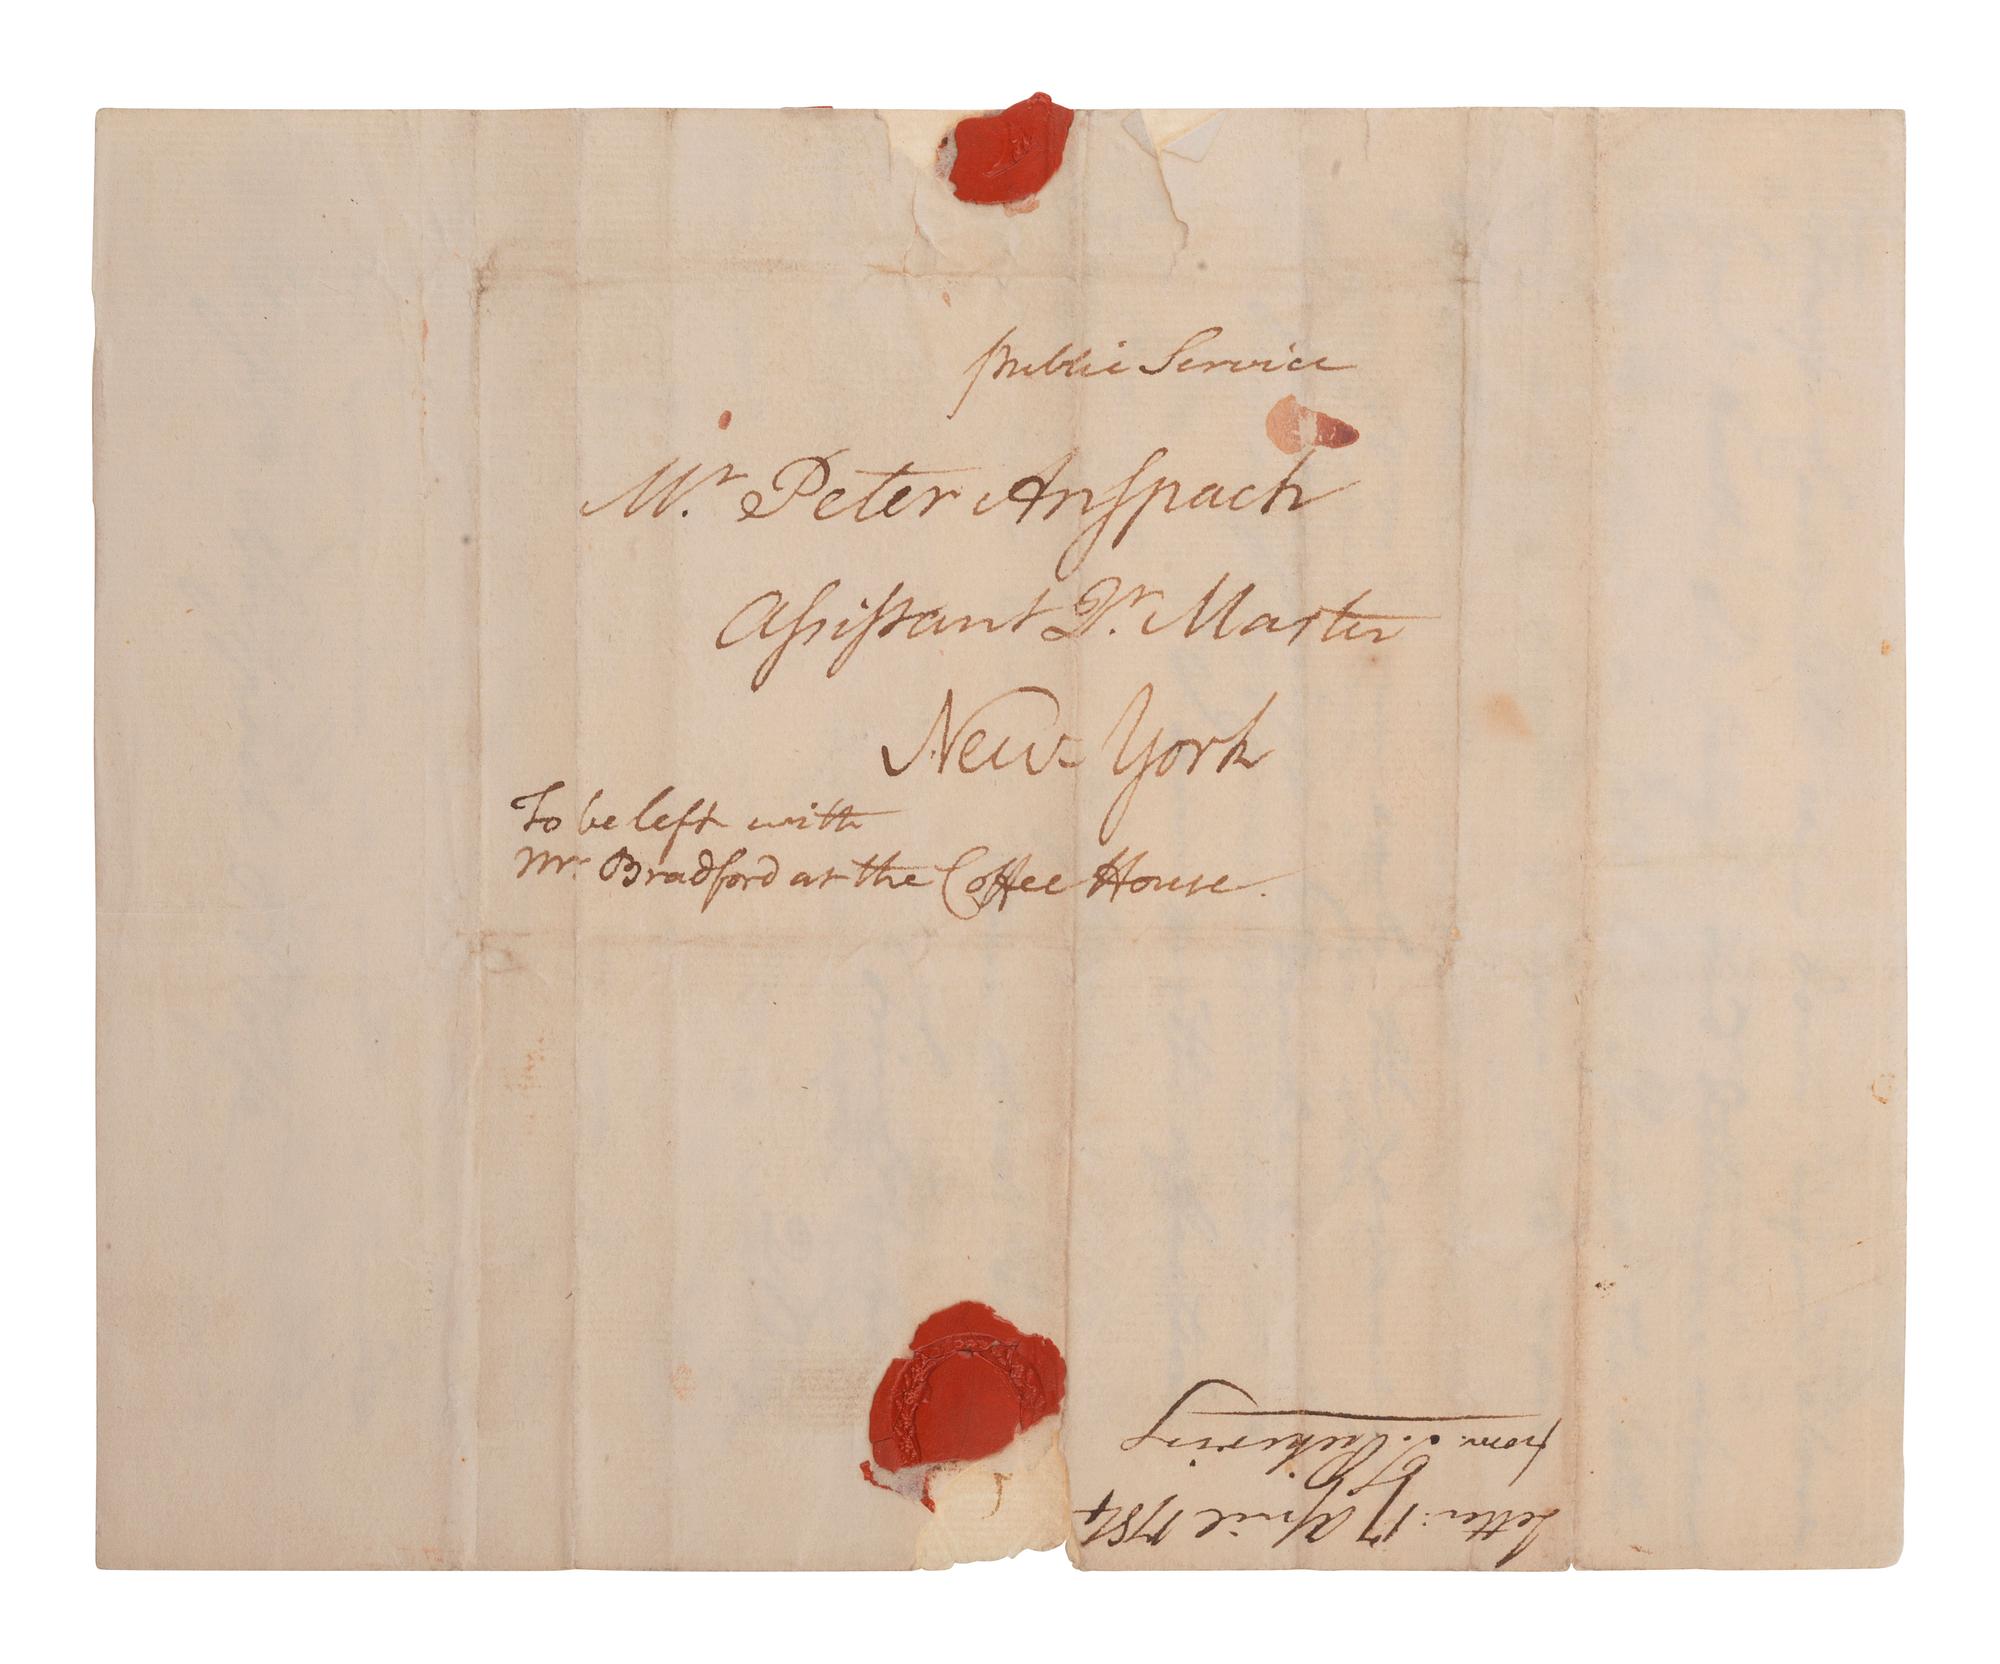 public Service
Mr. Peter Anspach
Assistant Qr. Master
New-York
To be left with
Mr. Bradford at the Coffee House.
Letter: 17 April 1784
from: T. Pickering